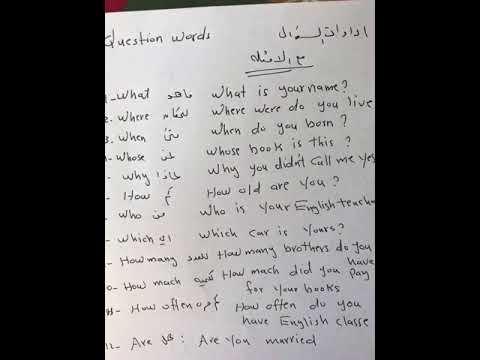 Question words ادادات السؤال
مع الامثله
1-What ماهو What is your name?
2. Where للمكان Where were do you live
3. When متى When do you born?
4-Whose لمن whose book is this?
- Why لماذا Why you didn't call me yes
- How كم How old are you?
- Who من Who is your English teache
- Which اي Which car is yours?
- How many للعدد How many brothers do you have
0- How mach كميه How mach did you pay
for your books
11- How often كم مره How often do you
have English classe
12- Are هل : Are you married